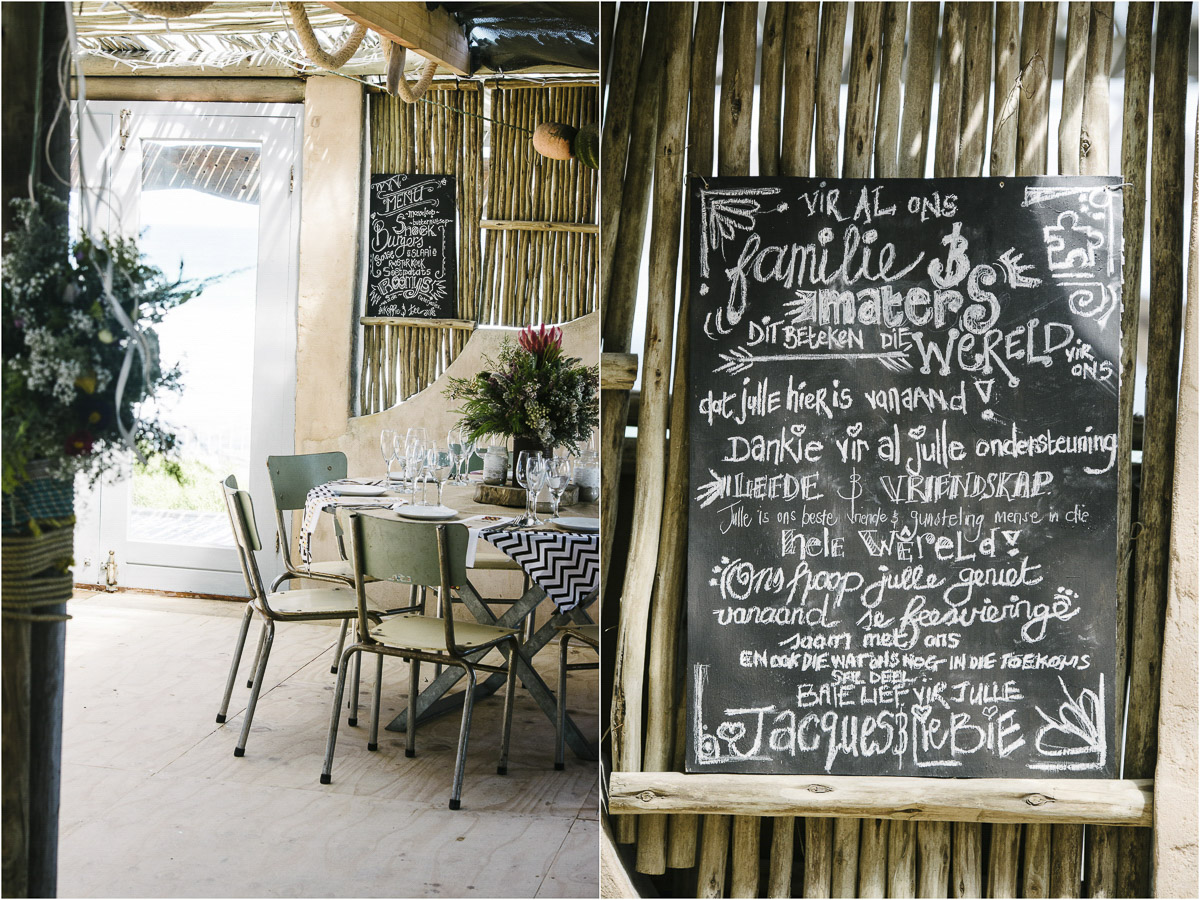 MENU
Burgers
SLAAI
VIR AL ONS
familie & SE
maters
DIT BETEKEN DIE WÊRELD VIR ONS
dat julle hier is vanaand!
Dankie vir al julle ondersteuning
LIEFDE & VRIENDSKAP.
Julle is ons beste vriende & gunsteling mense in die
hele wêreld!
Ons hoop julle geniet
vanaand se feesvieringe
saam met ons
EN OOK DIE WAT ONS NOG IN DIE TOEKOMS
SAL DEEL.
BAIE LIEF VIR JULLE
Jacques & Liebie